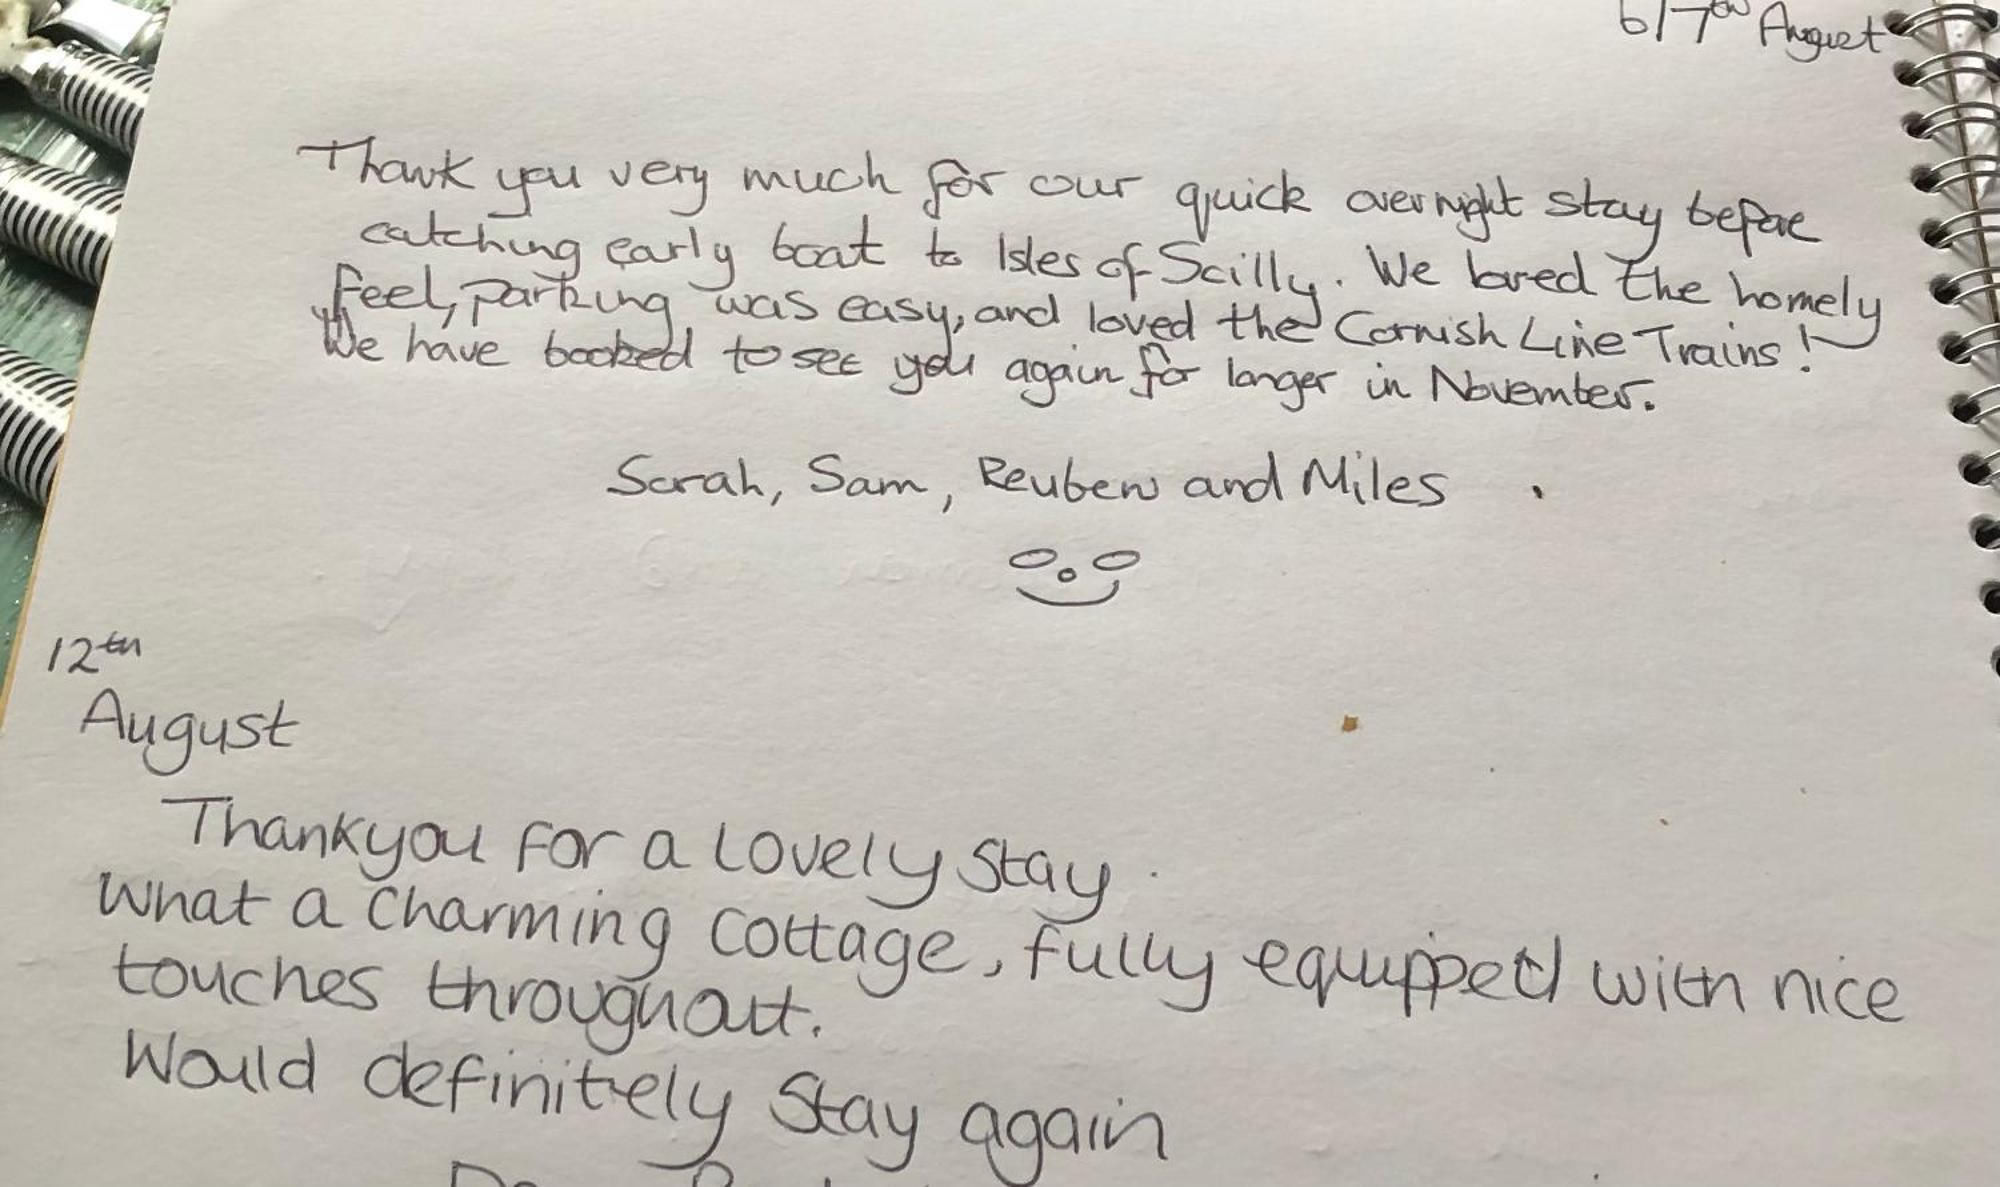 6/7th August
Thank you very much for our quick overnight stay before
catching early boat to Isles of Scilly. We loved the homely
feel, parking was easy, and loved the Cornish Line Trains!
We have booked to see you again for longer in November.
Sarah, Sam, Reuben and Miles
12th
August
Thankyou for a lovely stay.
What a charming cottage, fully equipped with nice
touches throughout.
Would definitely stay again